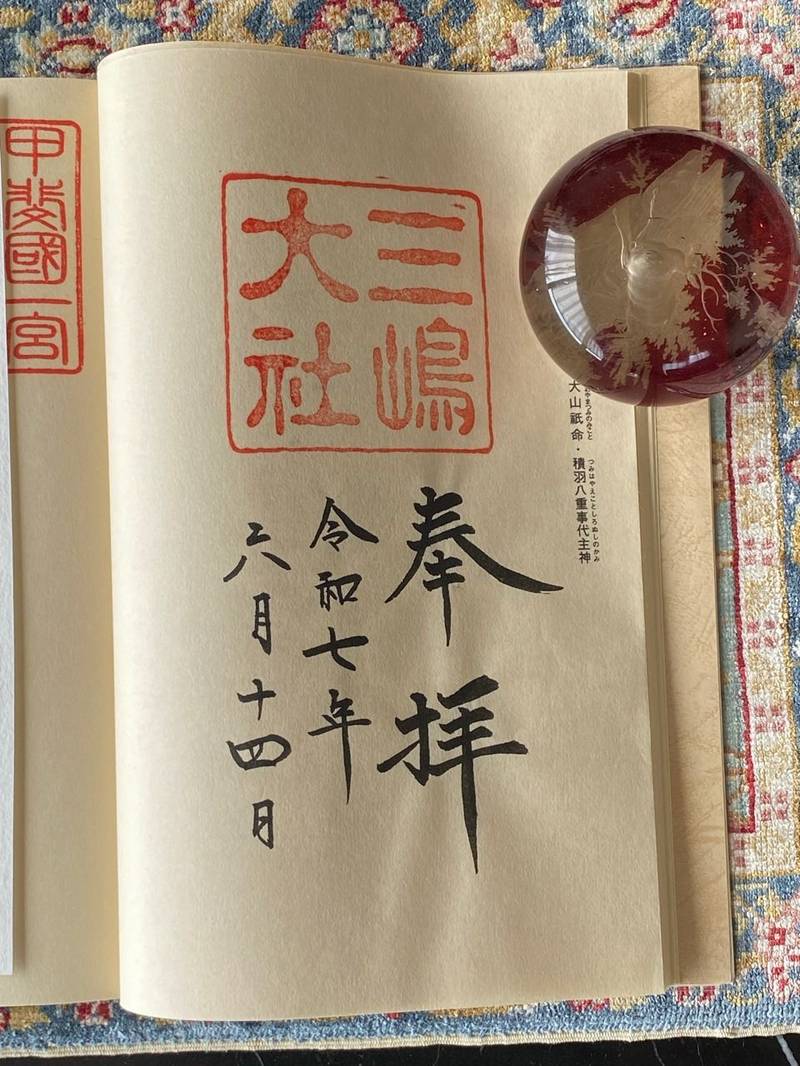 やまつみのみこと つみはやえことしろぬしのかみ
大山祇命・積羽八重事代主神
三嶋
大社
奉拝
令和七年
六月十四日
甲斐國一宮